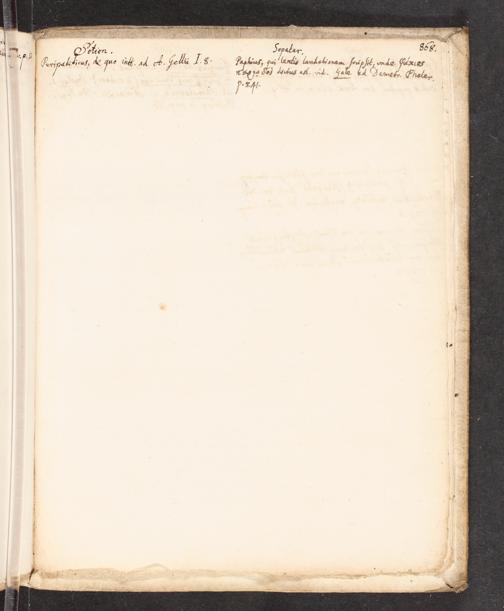 868.
Sotion.
Peripateticus, de quo intt. ad A. Gellii I. 8.
Sopater.
Paphius, qui lentis laudationem scripsit, unde
dictus est. vid. Gale ad Demetr. Phaler.
p. 241.